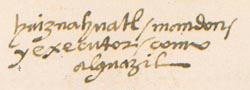 huiznahuatl / mandon /
y executor / como
alguazil